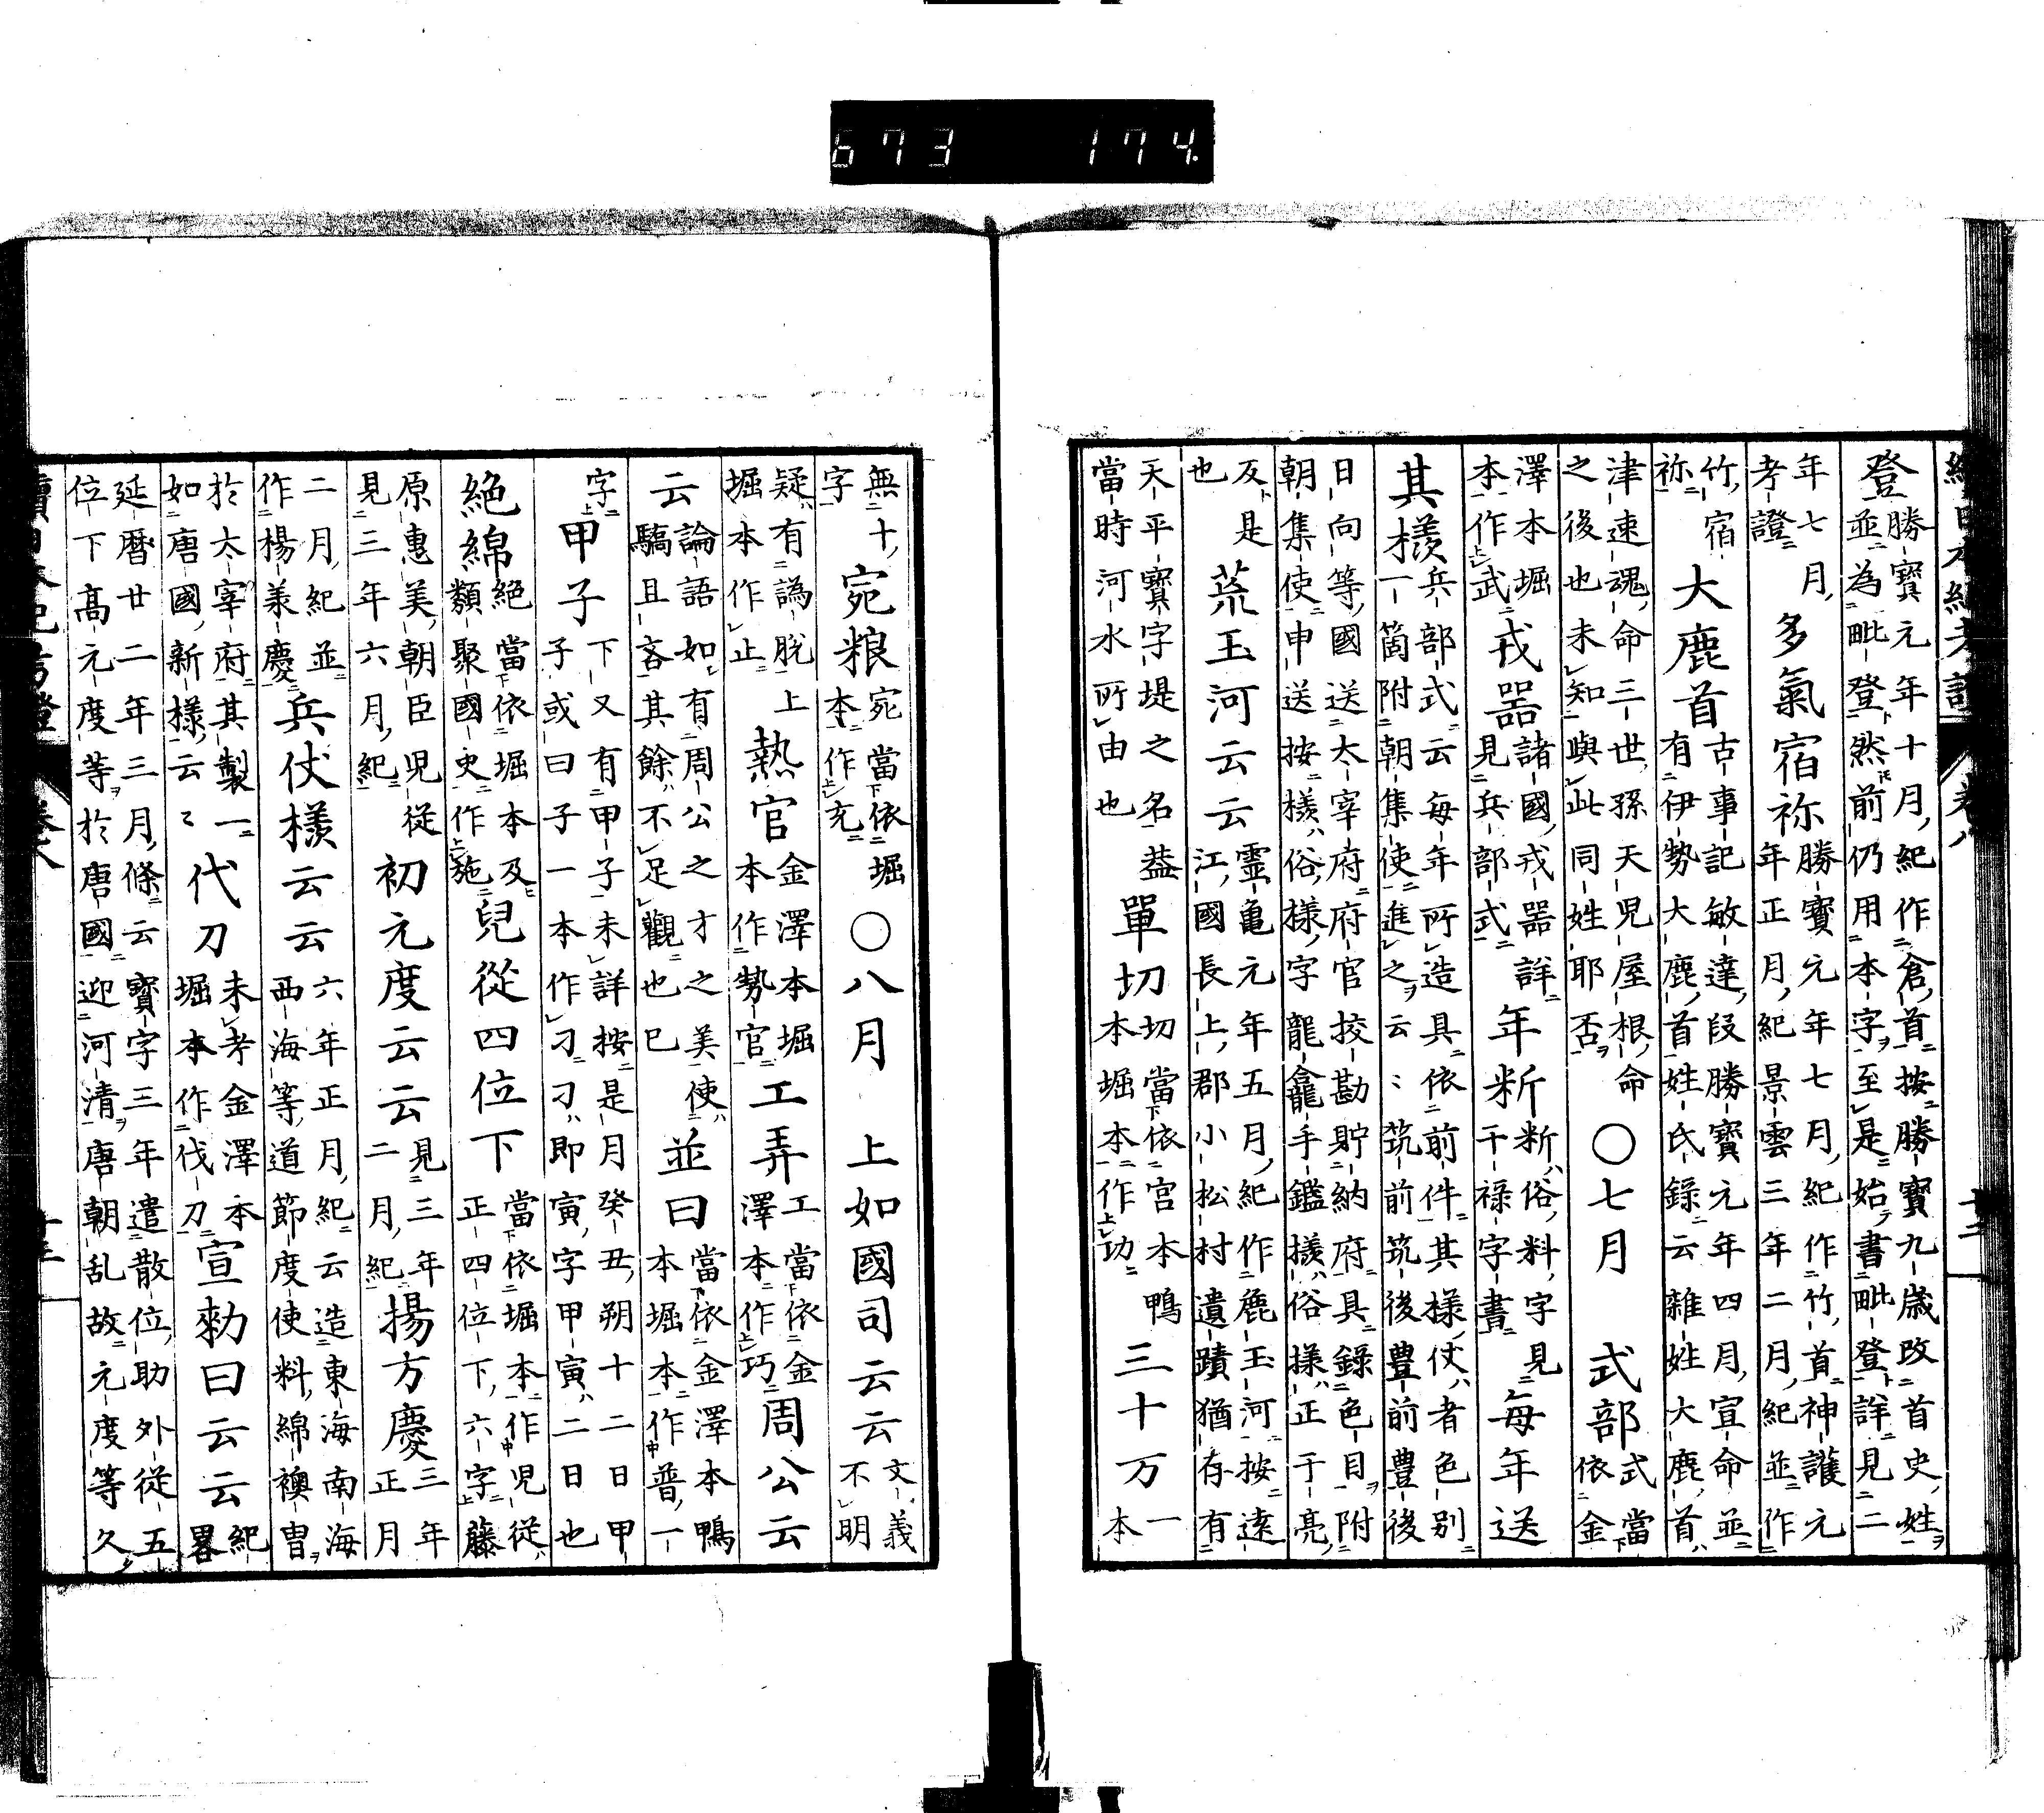 673 174.
續日本紀考證 卷八 十二
登勝寶元年十月紀作倉首按勝寶九歳改首史姓
並為毗登然前仍用本字至是始書毗登詳見二
年七月
考證 多氣宿祢勝寶元年七月紀作竹首神護元
年正月紀景雲三年二月紀並作
竹宿
祢 大鹿首古事記敏達段勝寶元年四月宣命並
有伊勢大鹿首姓氏錄云雜姓大鹿首
津速魂命三世孫天児屋根命
之後也未知與此同姓耶否 ○七月 式部式當
依金
澤本堀
本作武 戎器諸國戎器詳
見兵部式 年斫斫俗料字見
干祿字書 每年送
其㨾兵部式云每年所造具依前件其様仗者色別
一箇附朝集使進之云〻筑前筑後豊前豊後
日向等國送太宰府府官挍勘貯納府具錄色目附
朝集使申送按㨾俗様字龍龕手鑑㨾俗様正于亮
反是
也 荒玉河云云靈亀元年五月紀作鹿玉河按遠
江國長上郡小松村遺蹟猶存有
天平寶字堤之名葢
當時河水所由也 單切切當依宮本鴨
本堀本作功 三十万一
本
無十
字 宛粮宛當依堀
本作充 ○八月 上如國司云云文義
不明
疑有譌脱上
堀本作止 熱官金澤本堀
本作勢官 工弄工當依金
澤本作巧 周公云
云論語如有周公之才之美使
驕且吝其餘不足觀也已 並曰當依金澤本鴨
本堀本作普一
字 甲子下又有甲子未詳按是月癸丑朔十二日甲
子或曰子一本作刁刁即寅字甲寅二日也
絁綿絁當依堀本及
類聚國史作絁 兒從四位下當依堀本作児從
正四位下六字藤
原惠美朝臣児從
見三年六月紀 初元度云云見三年
二月紀 揚方慶三年
正月
二月紀並
作楊羕慶 兵仗㨾云云六年正月紀云造東海南海
西海等道節度使料綿襖冑
於太宰府其製一
如唐國新様云〻 代刀未考金澤本
堀本作伐刀 宣勅曰云云紀
畧
延暦廿二年三月條云寶字三年遣散位助外從五
位下髙元度等於唐國迎河清唐朝乱故元度等久
續日本紀考證 卷八 十三